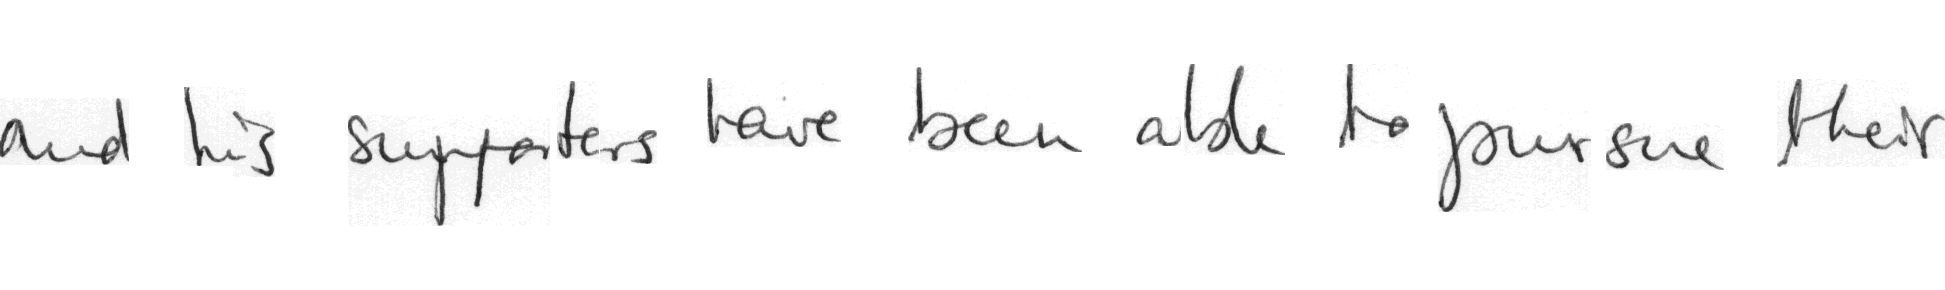 and his supporters have been able to pursue their